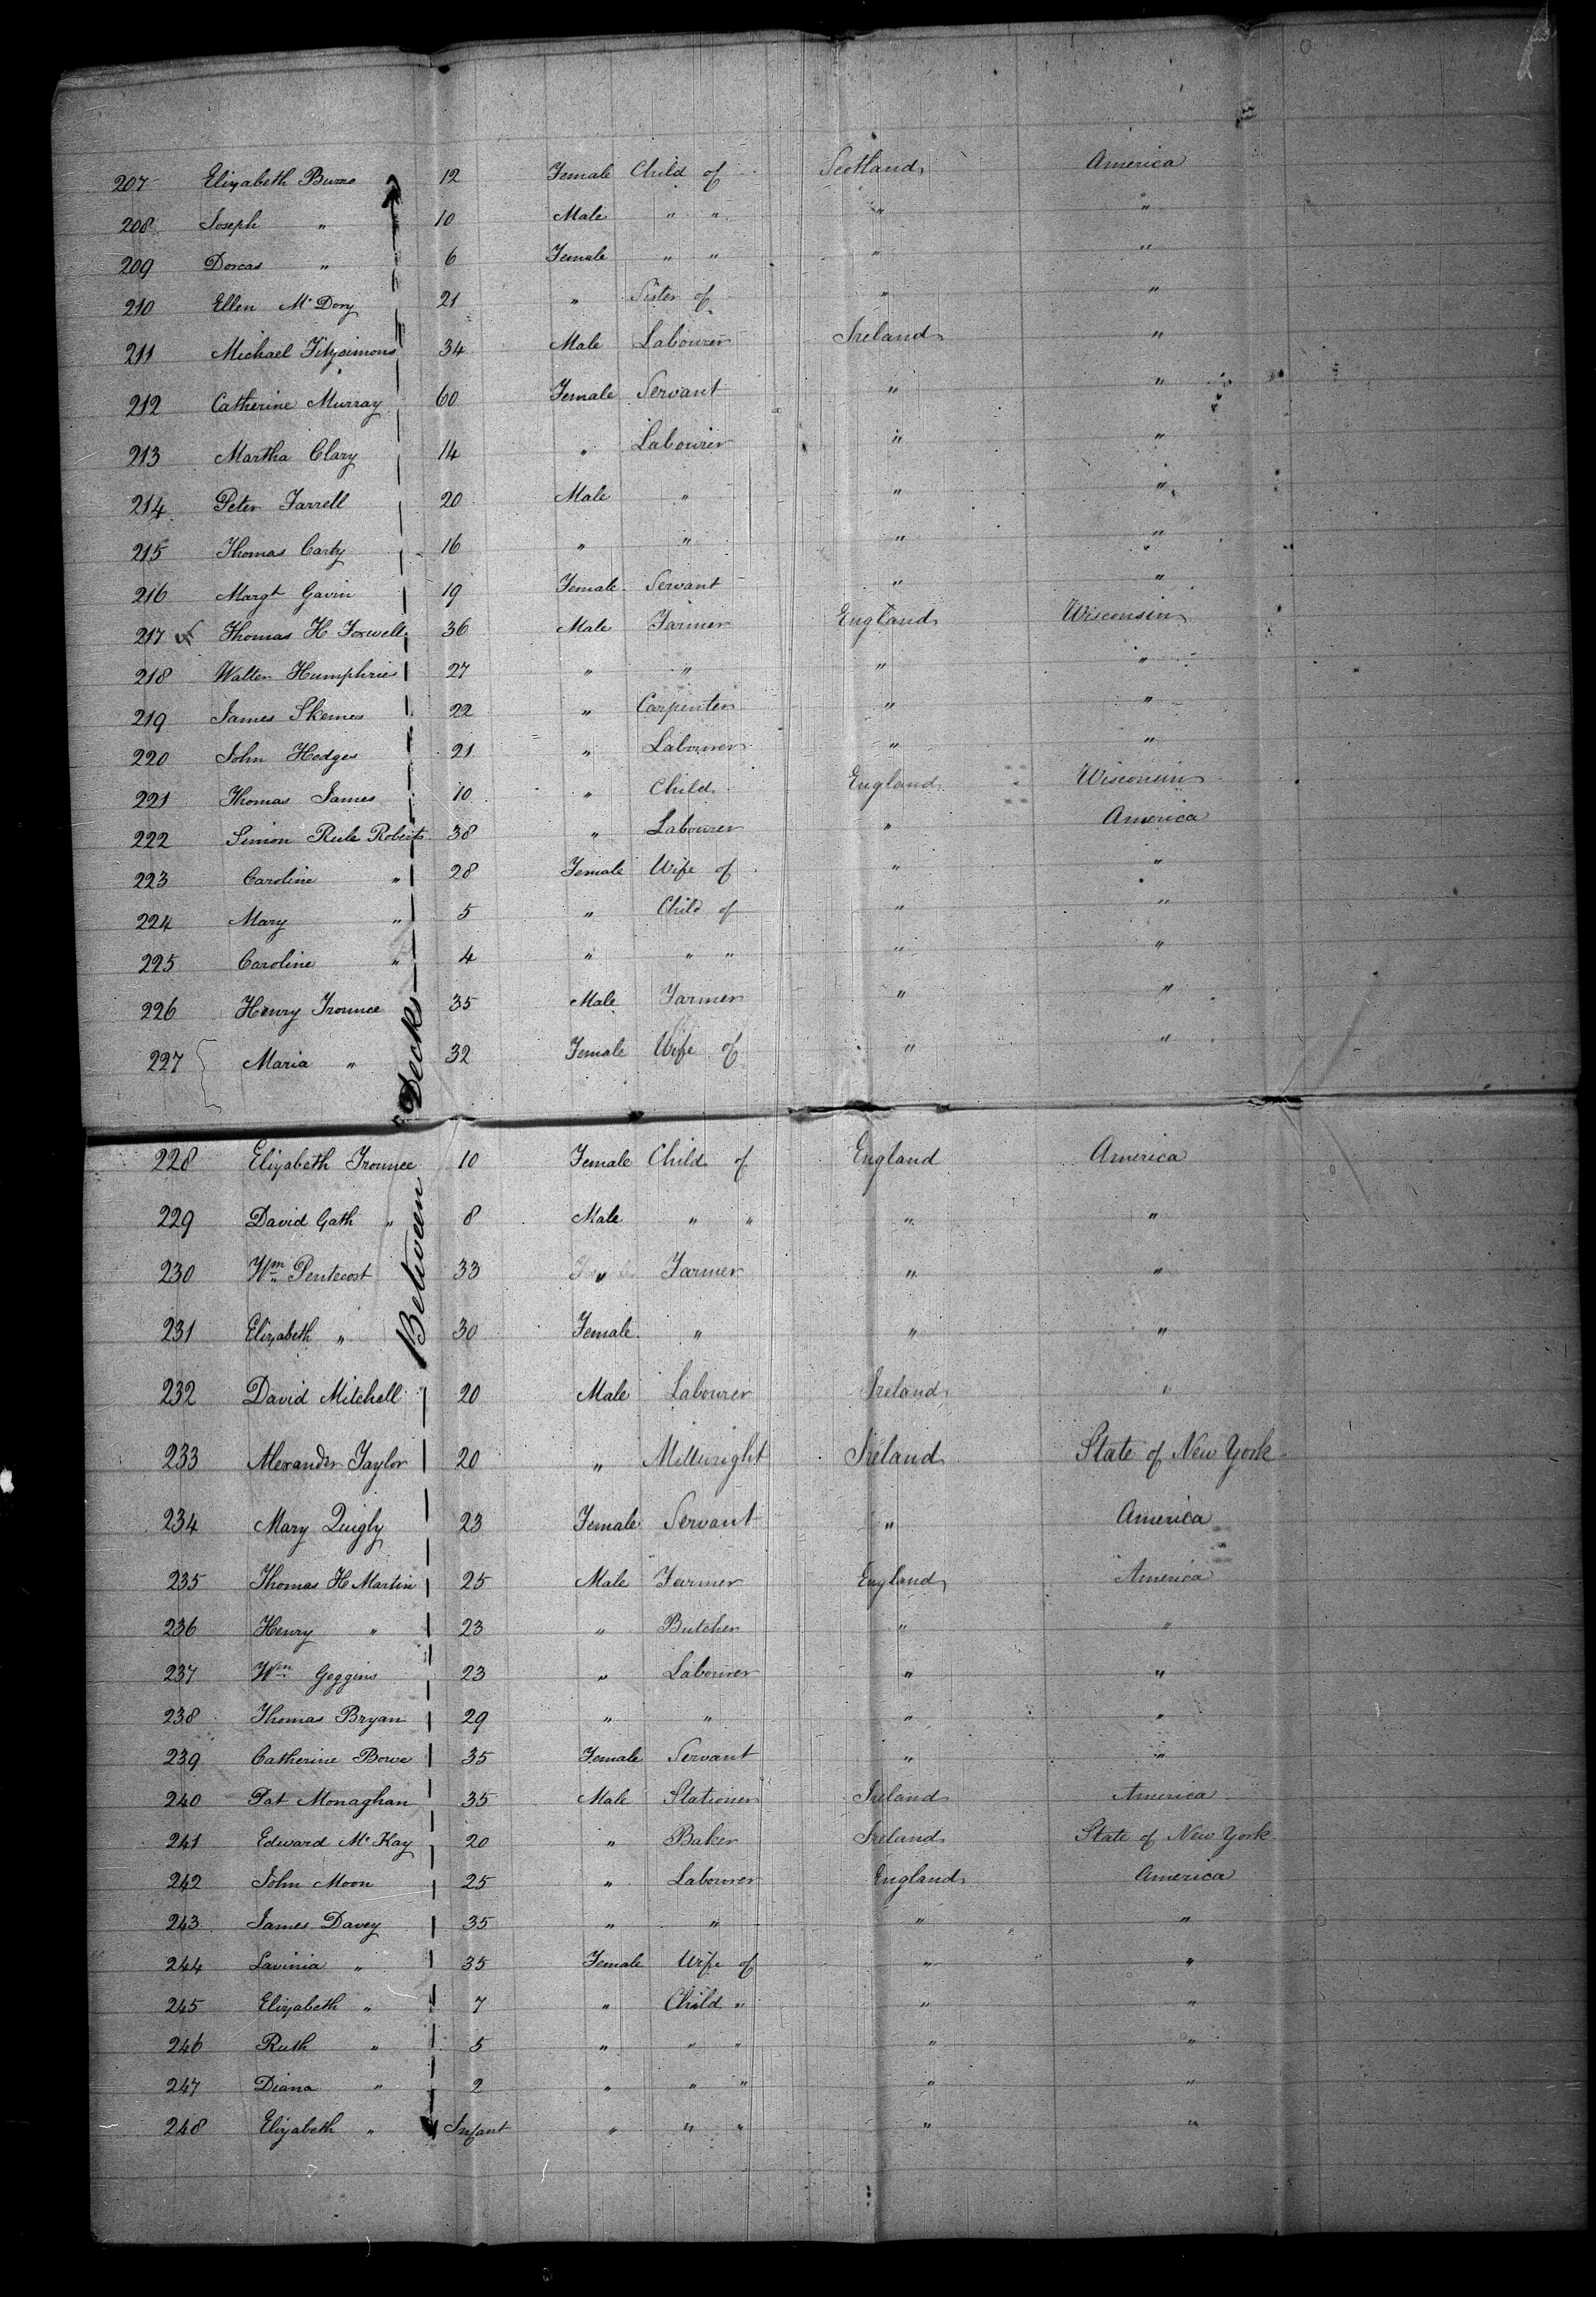 207 Elizabeth Burns 12 Female Child of Scotland America
208 Joseph " 10 Male " " " "
209 Dorcas " 6 Female " " " "
210 Ellen McDory 21 " Sister of " "
211 Michael Fitzsimons 34 Male Labourer Ireland "
212 Catherine Murray 60 Female Servant " "
213 Martha Clary 14 " Labourer " "
214 Peter Farrell 20 Male " " "
215 Thomas Carty 16 " " " "
216 Margt Gavin 19 Female Servant " "
217 Thomas H Foxwell 36 Male Farmer England Wisconsin
218 Walter Humphries 27 " " " "
219 James Skemes 22 " Carpenter " "
220 John Hodges 21 " Labourer " "
221 Thomas James 10 " Child England Wisconsin
222 Simon Rule Roberts 38 " Labourer " America
223 Caroline " 28 Female Wife of " "
224 Mary " 5 " Child of " "
225 Caroline " 4 " " " " "
226 Henry Trounce 35 Male Farmer " "
227 Maria " 32 Female Wife of " "
Between Decks
228 Elizabeth Trounce 10 Female Child of England America
229 David Gath " 8 Male " " " "
230 Wm Pentecost 33 " Farmer " "
231 Elizabeth " 30 Female " " "
232 David Mitchell 20 Male Labourer Ireland "
233 Alexander Taylor 20 " Millwright Ireland State of New York
234 Mary Quigly 23 Female Servant " America
235 Thomas H Martin 25 Male Farmer England America
236 Henry " 23 " Butcher " "
237 Wm Goggins 23 " Labourer " "
238 Thomas Bryan 29 " " " "
239 Catherine Bowe 35 Female Servant " "
240 Pat Monaghan 35 Male Stationer Ireland America
241 Edward McKay 20 " Baker Ireland State of New York
242 John Moon 25 " Labourer England America
243 James Davey 35 " " " "
244 Lavinia " 35 Female Wife of " "
245 Elizabeth " 7 " Child " " "
246 Ruth " 5 " " " " "
247 Diana " 2 " " " " "
248 Elizabeth " Infant " " " " "